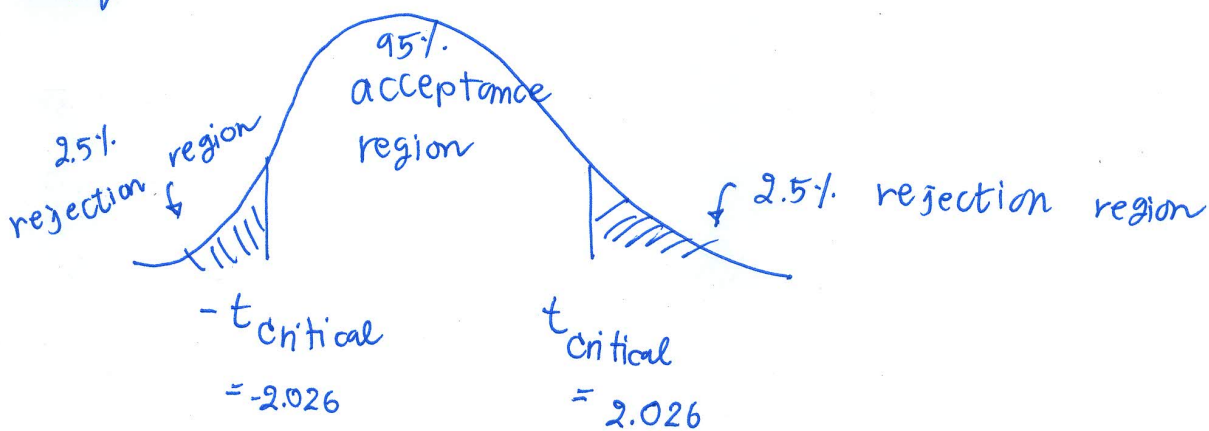 95%
acceptance
region
2.5%
rejection region
2.5% rejection region
- t critical
= -2.026
t critical
= 2.026